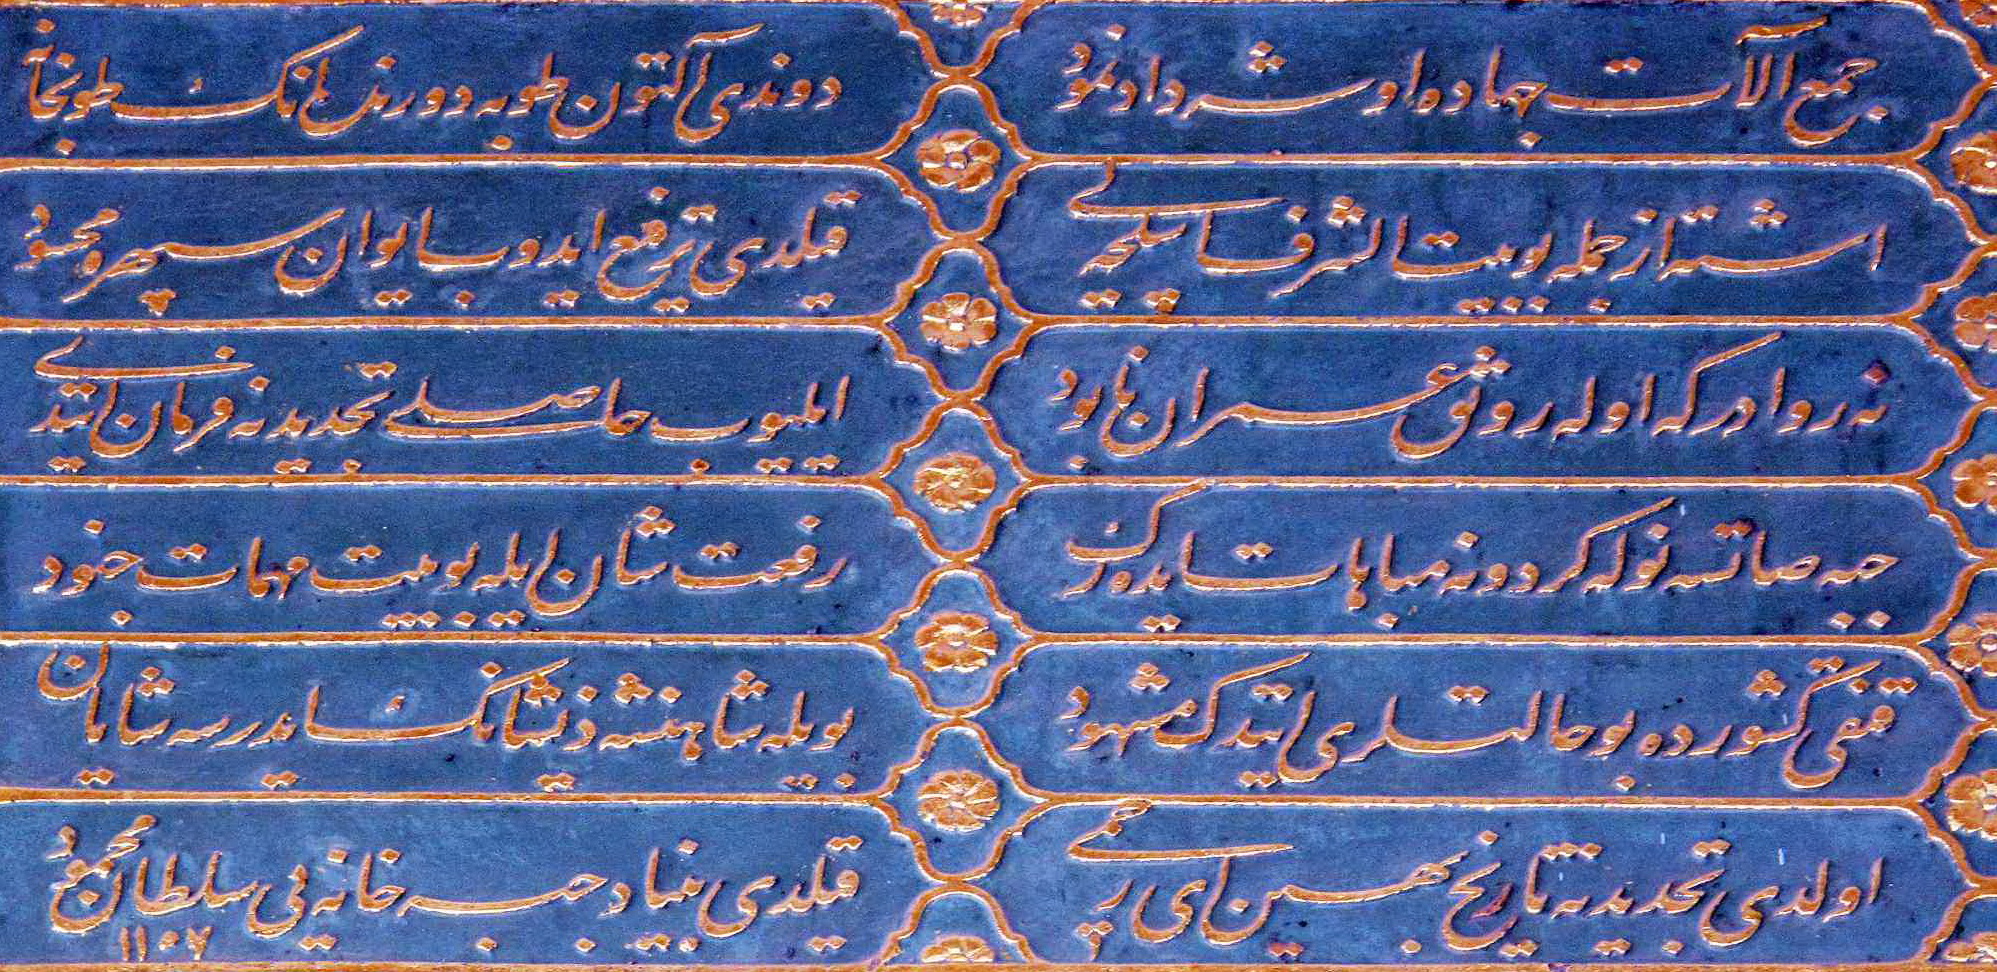 جمع آلات جهاده او شه داد نمود
دوندی آلتون طوپه دورنده انک طوپخانه
اشته از جمله بو بیت الشرف اسلحه یی
قیلدی ترفیع ایدوب ایوان سپهره محسود
نه روادر که اوله رونق عمران نابود
ایلیوب حاصلی تجدیدنه فرمان ایتدی
جبه صاتسه نوله کردونه مباهات ایده رک
رفعت شان ایله بو بیت مهمات جنود
قنقی کشورده بو حالتلری ایتدک مشهود
بویله شاهنشه ذیشانک شایان
اولدی تجدیدینه تاریخ بهین ای
قیلدی بنیاد جبه خانه یی سلطان محمود
١١٥٧